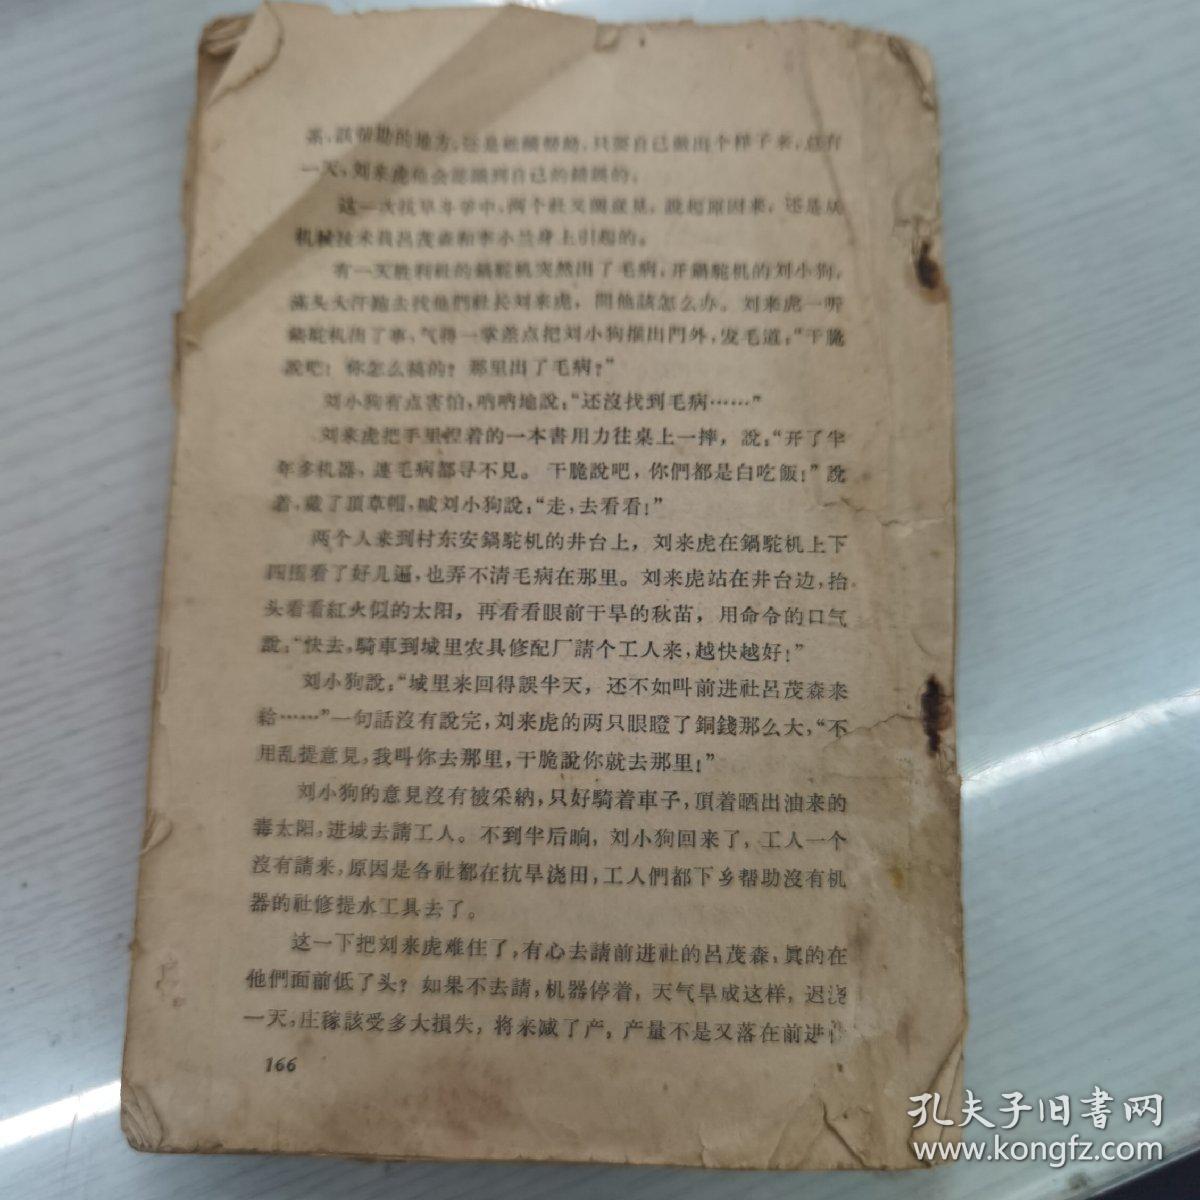 系,該帮助的地方,还是繼續帮助,只要自己做出个样子来,总有
一天,刘来虎他会認識到自己的錯誤的。
这一次抗旱斗爭中,两个社又鬧意見,說起原因来,还是从
机械技术員呂茂森和李小兰身上引起的。
有一天胜利社的鍋駝机突然出了毛病,开鍋駝机的刘小狗,
滿头大汗跑去找他們社长刘来虎,問他該怎么办。刘来虎一听
鍋駝机出了事、气得一掌差点把刘小狗推出門外,发毛道:“干脆
說吧!你怎么搞的?那里出了毛病?”
刘小狗有点害怕,吶吶地說:“还沒找到毛病……”
刘来虎把手里捏着的一本書用力往桌上一摔,說:“开了半
年多机器,連毛病都寻不見。干脆說吧,你們都是白吃飯!”說
着,戴了頂草帽,喊刘小狗說:“走,去看看!”
两个人来到村东安鍋駝机的井台上,刘来虎在鍋駝机上下
四围看了好几遍,也弄不清毛病在那里。刘来虎站在井台边,抬
头看看紅火似的太阳,再看看眼前干旱的秋苗,用命令的口气
說:“快去,騎車到城里农具修配厂請个工人来,越快越好!”
刘小狗說:“城里来回得誤半天,还不如叫前进社呂茂森来
給……”一句話沒有說完,刘来虎的两只眼瞪了銅錢那么大,“不
用乱提意見,我叫你去那里,干脆說你就去那里!”
刘小狗的意見沒有被采納,只好騎着車子,頂着晒出油来的
毒太阳,进城去請工人。不到半后晌,刘小狗回来了,工人一个
沒有請来,原因是各社都在抗旱浇田,工人們都下乡帮助沒有机
器的社修提水工具去了。
这一下把刘来虎难住了,有心去請前进社的呂茂森,眞的在
他們面前低了头?如果不去請,机器停着,天气旱成这样,迟浇
一天,庄稼該受多大損失,将来减了产,产量不是又落在前进
166
孔夫子旧書网
www.kongfz.com